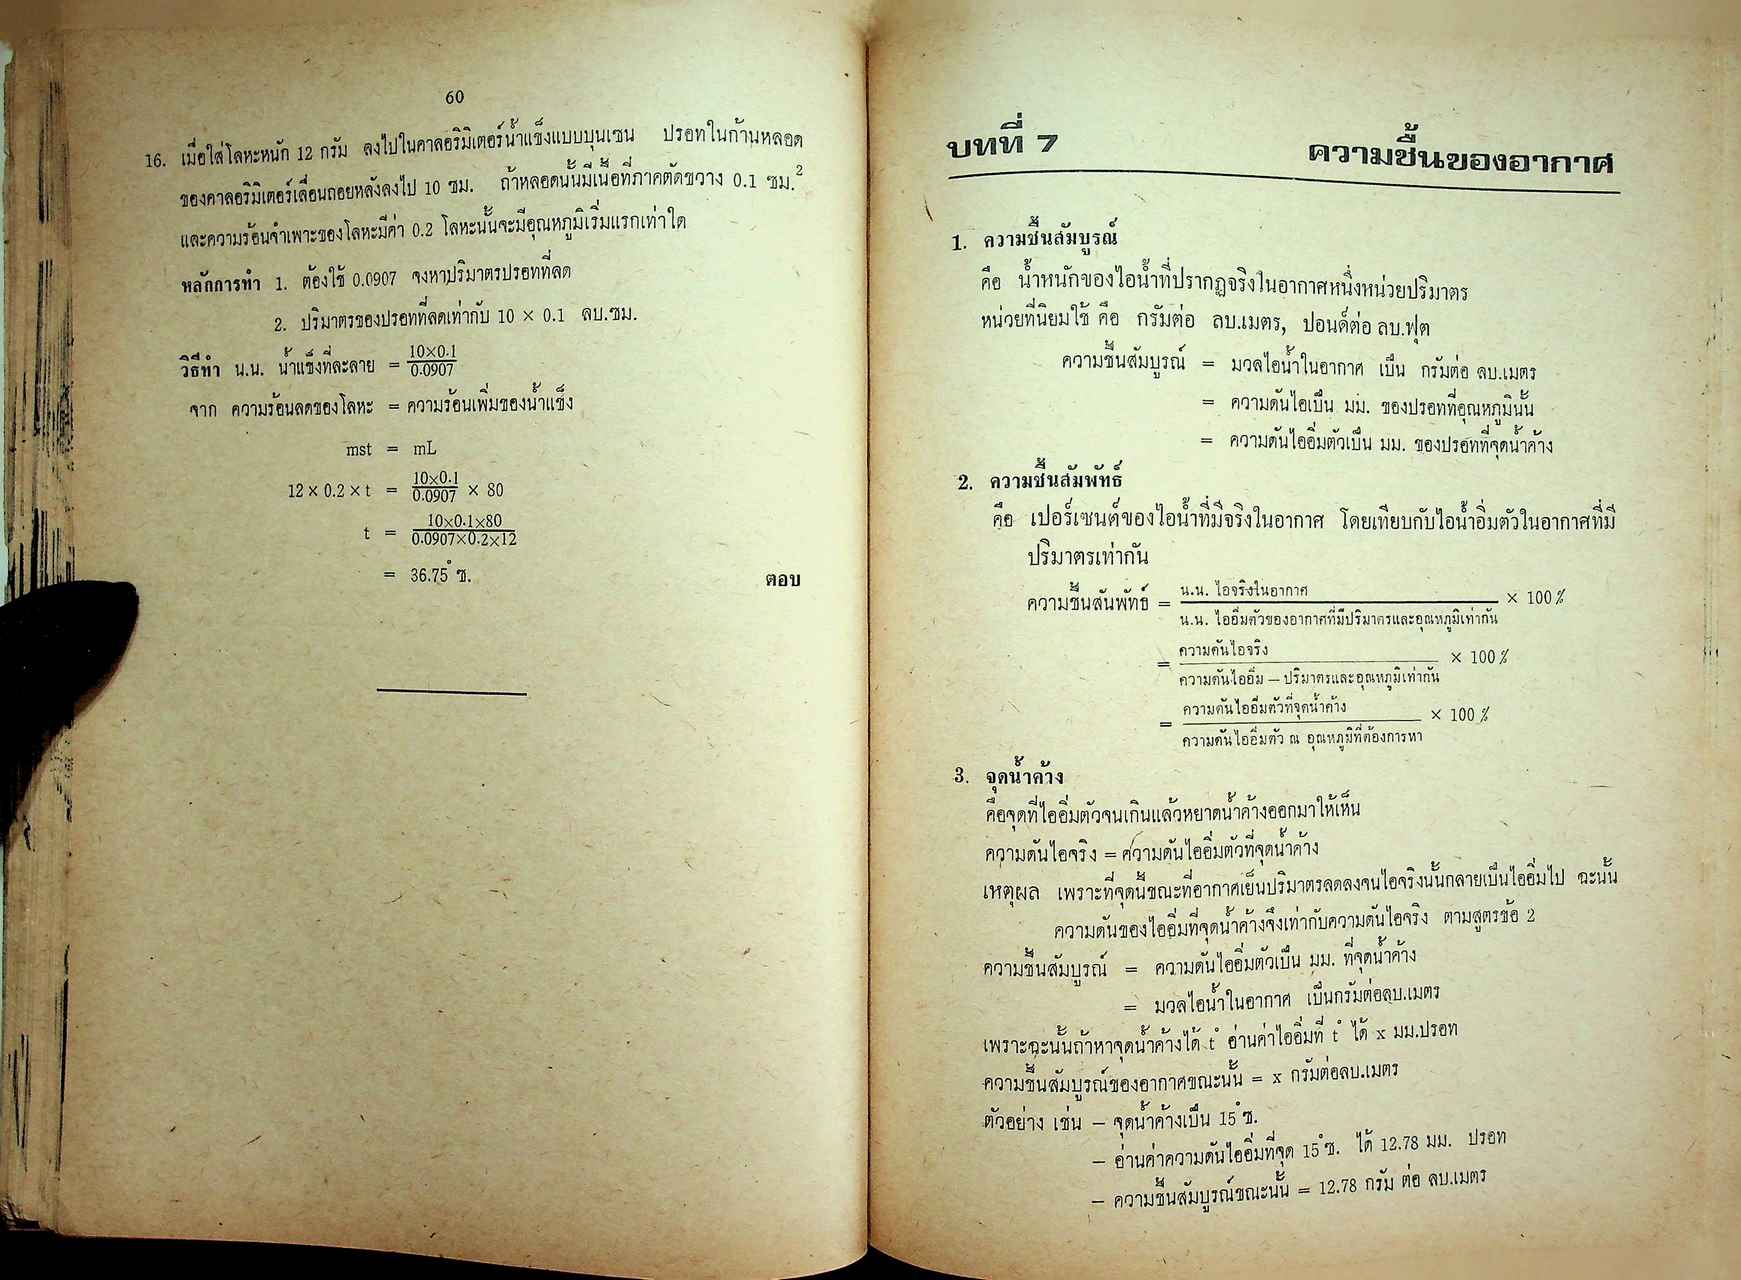 60
16. เมื่อใส่โลหะหนัก 12 กรัม ลงไปในคาลอริมิเตอร์น้ำแข็งแบบบุนเซน ปรอทในก้านหลอด
ของคาลอริมิเตอร์เลื่อนถอยหลังลงไป 10 ซม. ถ้าหลอดนั้นมีเนื้อที่ภาคตัดขวาง 0.1 ซม.²
และความร้อนจำเพาะของโลหะมีค่า 0.2 โลหะนั้นจะมีอุณหภูมิเริ่มแรกเท่าใด
หลักการทำ 1. ต้องใช้ 0.0907 จงหาปริมาตรปรอทที่ลด
2. ปริมาตรของปรอทที่ลดเท่ากับ 10 × 0.1 ลบ.ซม.
วิธีทำ น.น. น้ำแข็งที่ละลาย = 10×0.1/0.0907
จาก ความร้อนลดของโลหะ = ความร้อนเพิ่มของน้ำแข็ง
mst = mL
12 × 0.2 × t = 10×0.1/0.0907 × 80
t = 10×0.1×80/0.0907×0.2×12
= 36.75 ํซ. ตอบ
บทที่ 7 ความชื้นของอากาศ
1. ความชื้นสัมบูรณ์
คือ น้ำหนักของไอน้ำที่ปรากฏจริงในอากาศหนึ่งหน่วยปริมาตร
หน่วยที่นิยมใช้ คือ กรัมต่อ ลบ.เมตร, ปอนด์ต่อ ลบ.ฟุต
ความชื้นสัมบูรณ์ = มวลไอน้ำในอากาศ เป็น กรัมต่อ ลบ.เมตร
= ความดันไอเป็น มม. ของปรอทที่อุณหภูมินั้น
= ความดันไออิ่มตัวเป็น มม. ของปรอทที่จุดน้ำค้าง
2. ความชื้นสัมพัทธ์
คือ เปอร์เซนต์ของไอน้ำที่มีจริงในอากาศ โดยเทียบกับไอน้ำอิ่มตัวในอากาศที่มี
ปริมาตรเท่ากัน
ความชื้นสันพัทธ์ = น.น. ไอจริงในอากาศ/น.น. ไออิ่มตัวของอากาศที่มีปริมาตรและอุณหภูมิเท่ากัน × 100%
= ความดันไอจริง/ความดันไออิ่ม – ปริมาตรและอุณหภูมิเท่ากัน × 100%
= ความดันไออิ่มตัวที่จุดน้ำค้าง/ความดันไออิ่มตัว ณ อุณหภูมิที่ต้องการหา × 100%
3. จุดน้ำค้าง
คือจุดที่ไออิ่มตัวจนเกินแล้วหยาดน้ำค้างออกมาให้เห็น
ความดันไอจริง = ความดันไออิ่มตัวที่จุดน้ำค้าง
เหตุผล เพราะที่จุดนี้ขณะที่อากาศเย็นปริมาตรลดลงจนไอจริงนั้นกลายเป็นไออิ่มไป ฉะนั้น
ความดันของไออิ่มที่จุดน้ำค้างจึงเท่ากับความดันไอจริง ตามสูตรข้อ 2
ความชื้นสัมบูรณ์ = ความดันไออิ่มตัวเป็น มม. ที่จุดน้ำค้าง
= มวลไอน้ำในอากาศ เป็นกรัมต่อลบ.เมตร
เพราะฉะนั้นถ้าหาจุดน้ำค้างได้ t ํ อ่านค่าไออิ่มที่ t ํ ได้ x มม.ปรอท
ความชื้นสัมบูรณ์ของอากาศขณะนั้น = x กรัมต่อลบ.เมตร
ตัวอย่าง เช่น – จุดน้ำค้างเป็น 15 ํซ.
– อ่านค่าความดันไออิ่มที่จุด 15 ํซ. ได้ 12.78 มม. ปรอท
– ความชื้นสัมบูรณ์ขณะนั้น = 12.78 กรัม ต่อ ลบ.เมตร